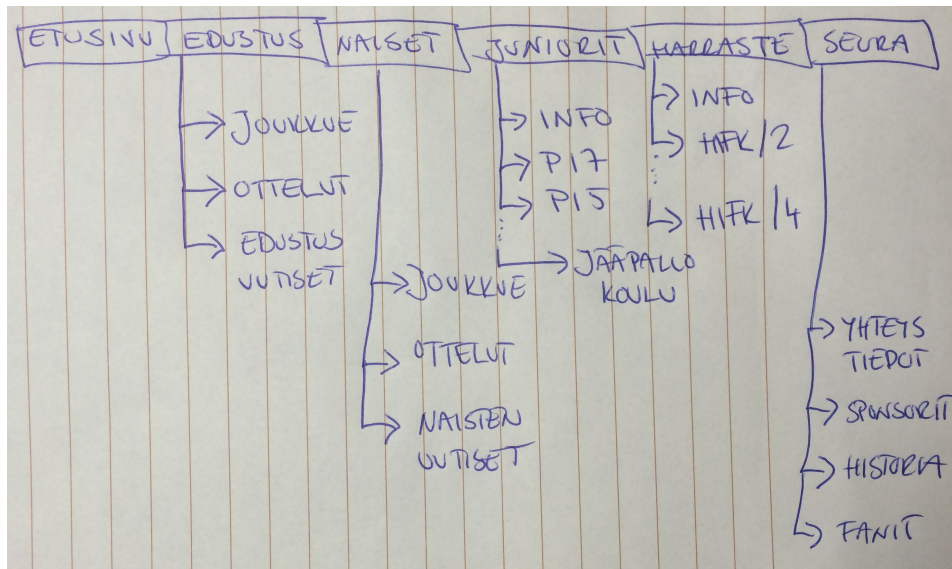 ETUSIVU EDUSTUS NAISET JUNIORIT HARRASTE SEURA
JOUKKUE
OTTELUT
EDUSTUS
UUTISET
JOUKKUE
OTTELUT
NAISTEN
UUTISET
INFO
P17
P15
JÄÄPALLO
KOULU
INFO
HIFK/2
HIFK/4
YHTEYS
TIEDOT
SPONSORIT
HISTORIA
FANIT